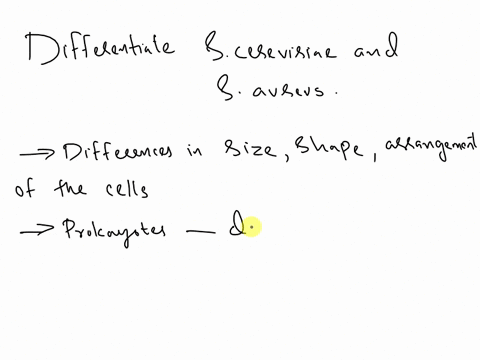 Differentiate S. cerevisiae and
S. aureus.
→ Differences in size, shape, arrangement
of the cells
→ Prokayotes — d